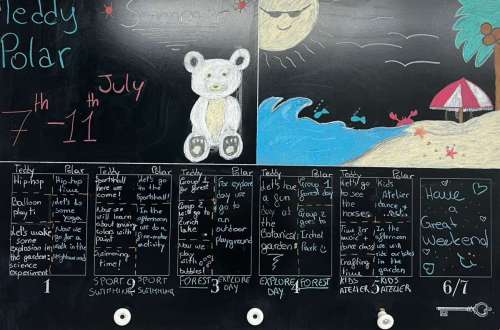 Teddy
Polar
Summer
7th-11th July
Teddy
Hip-hop
Balloon
play
Let's make
some
explosion in
the garden:
science
experiment
Polar
Hip-hop
time
Let's do
some
Yoga
Now we
go for a
walk in the
neighbourhood
1
Teddy
Sportshall
here we
come!
Now we
will learn
about mixing
colors with
paint
Swimming
time!
Polar
Let's go
in the
sportshall
In the
afternoon
we do a
activity
2
SPORT
SWIMMING
SPORT
SWIMMING
Teddy
Group 1
for forest
Group 2
will go to
lake
Now we
play
with
bubbles!
Polar
For explore
day we
go to
an
outdoor
playground
3
FOREST
EXPLORE
DAY
Teddy
Let's have
a fun
day at
the
Botanical
garden
Polar
Group 1
forest day
Group 2
goes to
Park
4
EXPLORE
DAY
FOREST
Teddy
Let's go
to see
the
horses
Time for
music
class
Crafting
time
Polar
Kids
Atelier
dance
In the
afternoon
we will
ride our bikes
in the
garden
5
KIDS
ATELIER
KIDS
ATELIER
Have
a
Great
Weekend
6/7